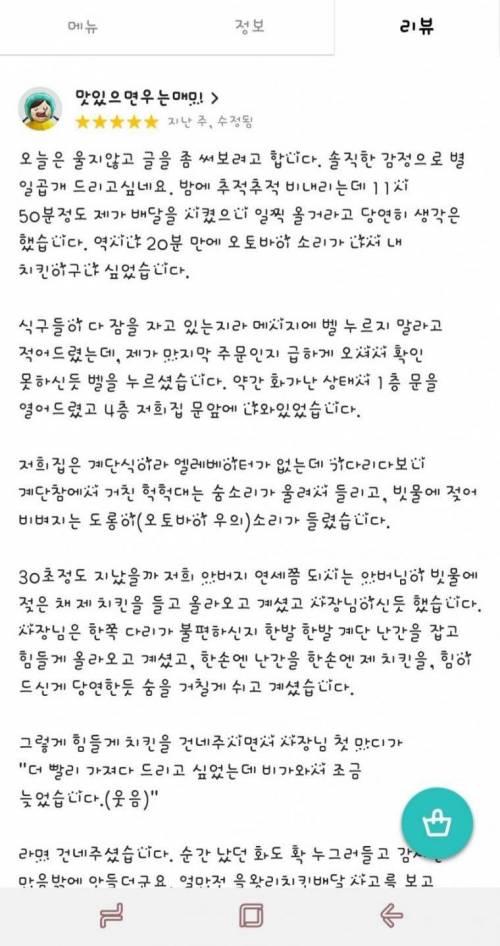 메뉴
정보
리뷰
맛있으면우는매미 >
지난 주, 수정됨
오늘은 울지않고 글을 좀 써보려고 합니다. 솔직한 감정으로 별
일곱개 드리고싶네요. 밤에 추적추적 비내리는데 11시
50분정도 제가 배달을 시켰으니 일찍 올거라고 당연히 생각은
했습니다. 역시나 20분 만에 오토바이 소리가 나서 내
치킨이구나 싶었습니다.
식구들이 다 잠을 자고 있는지라 메시지에 벨 누르지 말라고
적어드렸는데, 제가 마지막 주문인지 급하게 오셔서 확인
못하신듯 벨을 누르셨습니다. 약간 화가난 상태서 1층 문을
열어드렸고 4층 저희집 문앞에 나와있었습니다.
저희집은 계단식이라 엘레베이터가 없는데 기다리다보니
계단참에서 거친 헉헉대는 숨소리가 울려서 들리고, 빗물에 젖어
비벼지는 도롱이(오토바이 우의)소리가 들렸습니다.
30초정도 지났을까 저희 아버지 연세쯤 되시는 아버님이 빗물에
젖은 채 제 치킨을 들고 올라오고 계셨고 사장님이신듯 했습니다.
사장님은 한쪽 다리가 불편하신지 한발 한발 계단 난간을 잡고
힘들게 올라오고 계셨고, 한손엔 난간을 한손엔 제 치킨을, 힘이
드신게 당연한듯 숨을 거칠게 쉬고 계셨습니다.
그렇게 힘들게 치킨을 건네주시면서 사장님 첫 마디가
"더 빨리 가져다 드리고 싶었는데 비가와서 조금
늦었습니다.(웃음)"
라며 건네주셨습니다. 순간 났던 화도 확 누그러들고
마음밖에 안들더군요. 얼마전 을왕리치킨배달 사고를 보고